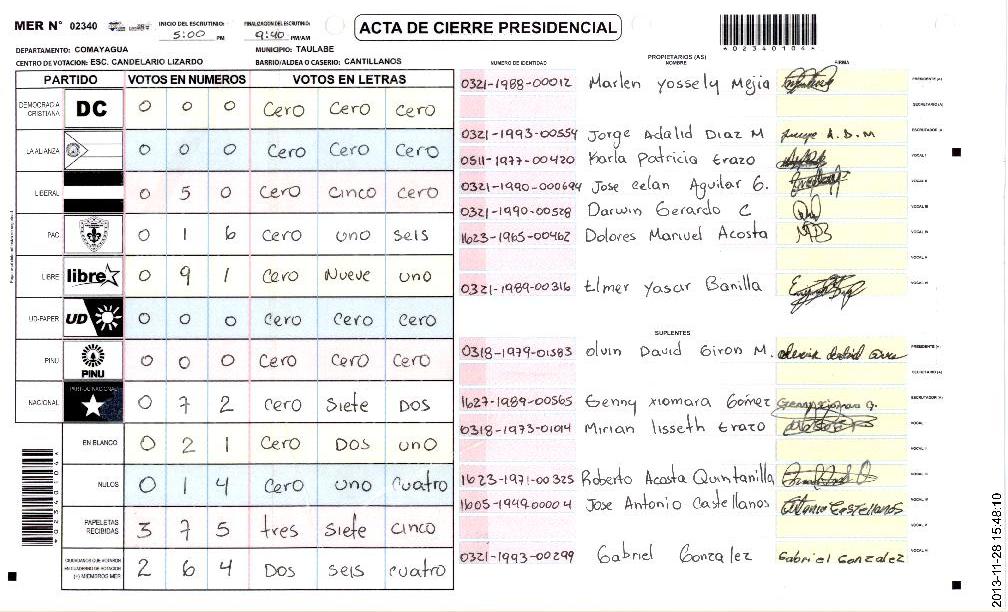 MER N° 02340
INICIO DEL ESCRUTINIO: 5:00 PM
FINALIZACION DEL ESCRUTINIO: 9:40 PM/AM
ACTA DE CIERRE PRESIDENCIAL
*02340104*
DEPARTAMENTO: COMAYAGUA
MUNICIPIO: TAULABE
CENTRO DE VOTACION: ESC. CANDELARIO LIZARDO
BARRIO/ALDEA O CASERIO: CANTILLANOS
PARTIDO VOTOS EN NUMEROS VOTOS EN LETRAS
DEMOCRACIA CRISTIANA DC 0 0 0 Cero Cero Cero
LA ALIANZA 0 0 0 Cero Cero Cero
LIBERAL 0 5 0 Cero Cinco Cero
PAC 0 1 6 Cero uno seis
LIBRE libre 0 9 1 Cero Nueve uno
UD-FAPER UD 0 0 0 Cero Cero Cero
PINU PINU 0 0 0 Cero Cero Cero
NACIONAL PARTIDO NACIONAL 0 7 2 Cero Siete Dos
EN BLANCO 0 2 1 Cero Dos uno
NULOS 0 1 4 Cero uno cuatro
PAPELETAS RECIBIDAS 3 7 5 tres Siete cinco
CIUDADANOS QUE VOTARON EN CUADERNO DE VOTACION (+) MIEMBROS MER 2 6 4 Dos seis cuatro
PROPIETARIOS (AS)
NUMERO DE IDENTIDAD NOMBRE FIRMA
0321-1988-00012 Marlen Yossely Mejia PRESIDENTE (A)
SECRETARIO (A)
0321-1993-00554 Jorge Adalid Diaz M ESCRUTADOR (A)
0511-1977-00420 Karla Patricia Erazo VOCAL I
0321-1990-000694 Jose Celan Aguilar G. VOCAL II
0321-1990-00528 Darwin Gerardo C VOCAL III
1623-1965-00462 Dolores Manuel Acosta VOCAL IV
VOCAL V
0321-1989-00316 Elmer Yasar Banilla VOCAL VI
SUPLENTES
0318-1979-01383 olvin David Giron M. PRESIDENTE (A)
SECRETARIO (A)
1627-1989-00565 Genny xiomara Gómez ESCRUTADOR (A)
0318-1973-01014 Mirian lisseth Erazo VOCAL I
VOCAL II
1623-1971-00325 Roberto Acosta Quintanilla VOCAL III
1605-1949-00004 Jose Antonio Castellanos VOCAL IV
VOCAL V
0321-1993-00299 Gabriel Gonzalez Gabriel Gonzalez VOCAL VI
2013-11-28 15:48:10